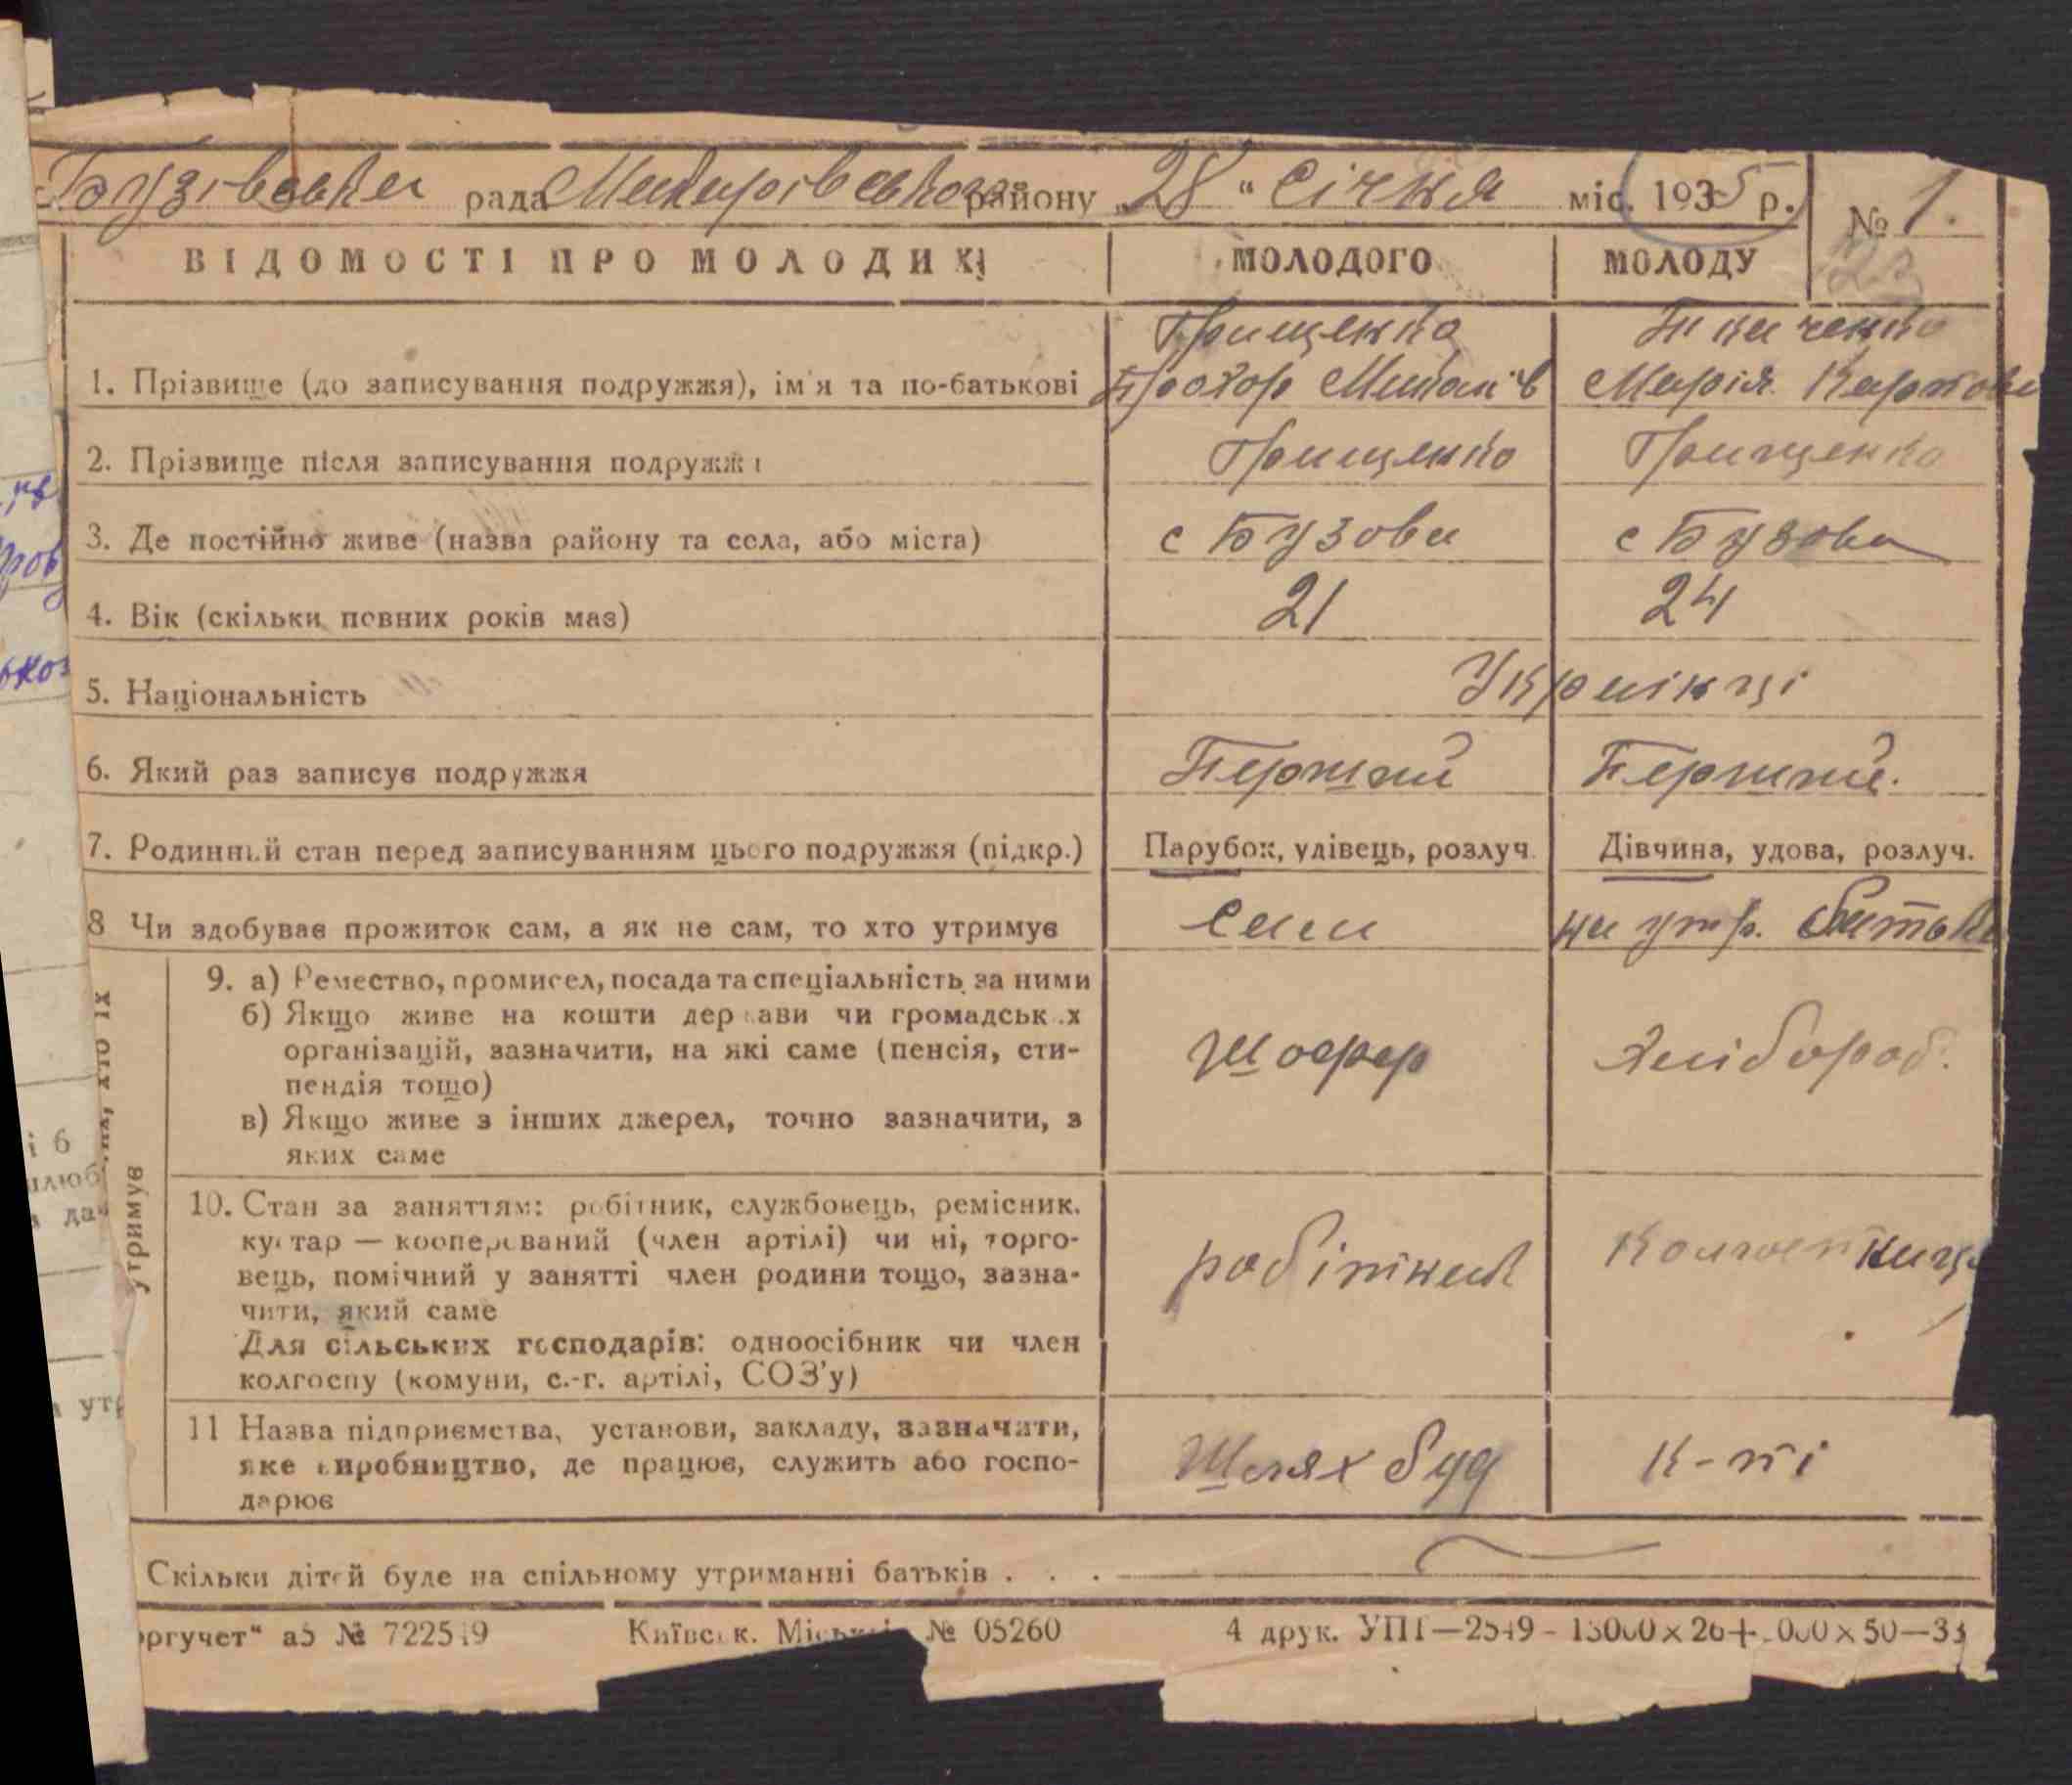 Бузівська рада Макарівського району „28“ Січня міс. 1935 р. № 1.
23
ВІДОМОСТІ ПРО МОЛОДИХ МОЛОДОГО МОЛОДУ
Грищенко Ткаченко
1. Прізвище (до записування подружжя), ім'я та по-батькові Прохор Михайлів Марія Карпова
2. Прізвище після записування подружжя Грищенко Грищенко
3. Де постійно живе (назва району та села, або міста) с Бузова с Бузова
4. Вік (скільки повних років має) 21 24
5. Національність Українці
6. Який раз записує подружжя Перший Перший.
7. Родинний стан перед записуванням цього подружжя (підкр.) Парубок, удівець, розлуч. Дівчина, удова, розлуч.
8 Чи здобуває прожиток сам, а як не сам, то хто утримує Сам на утр. батька
9. а) Ремество, промисел, посада та спеціальність за ними
б) Якщо живе на кошти держави чи громадських
організацій, зазначити, на які саме (пенсія, сти-
пендія тощо) шофер хлібороб.
в) Якщо живе з інших джерел, точно зазначити, з
яких саме
10. Стан за заняттям: робітник, службовець, ремісник.
кустар — кооперований (член артілі) чи ні, торго-
вець, помічний у занятті член родини тощо, зазна- робітник Колгоспниця
чити, який саме
Для сільських господарів: одноосібник чи член
колгоспу (комуни, с.-г. артілі, СОЗ'у)
11 Назва підприємства, установи, закладу, зазначати,
яке виробництво, де працює, служить або госпо- Шляхбуд к-пі
дарює
утримує
Скільки дітей буде на спільному утриманні батьків . . .
оргучет“ аб № 722549 Київськ. № 05260 4 друк. УПП—2549